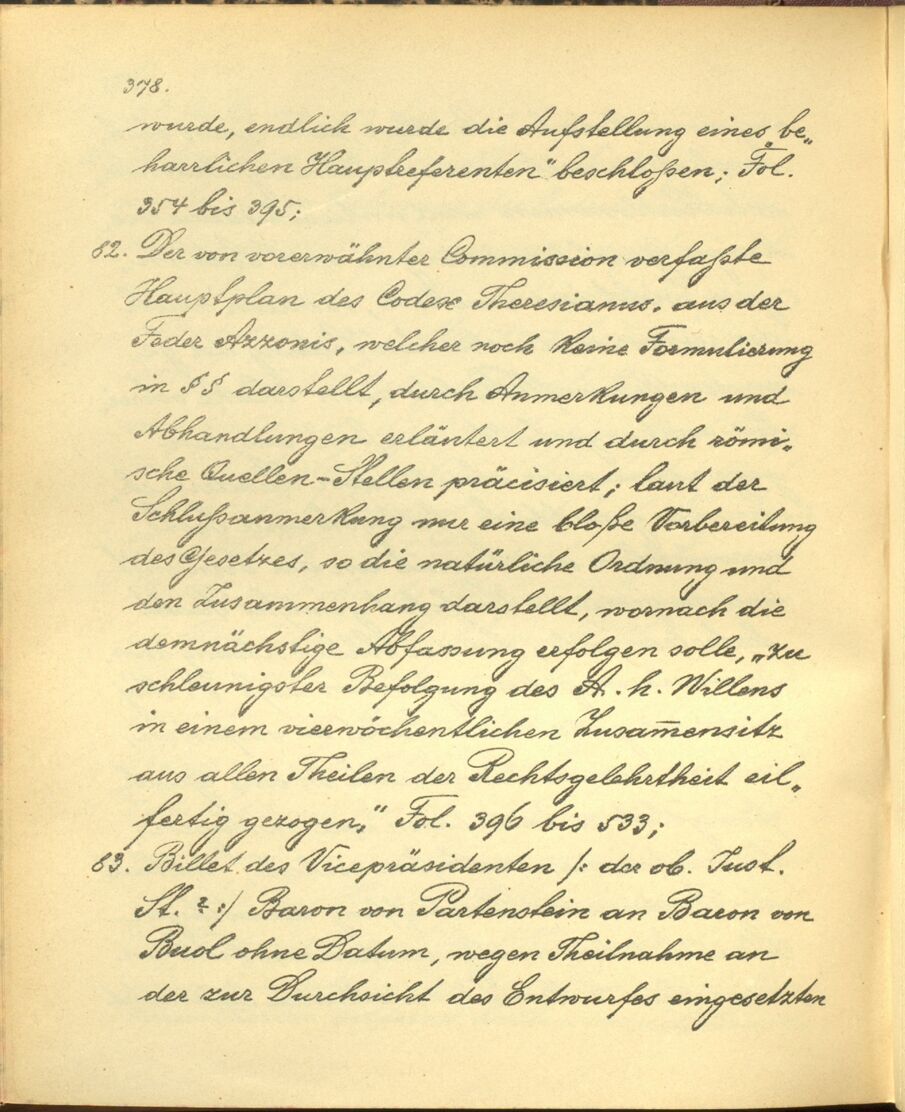 378.
wurde, endlich wurde die Aufstellung eines „be„
harrlichen Hauptreferenten" beschloßen; Fol.
354 bis 395;
82. Der von vorerwähnter Commission verfaßte
Hauptplan des Codex Theresianus, aus der
Feder Azzonis, welcher noch keine Formulierung
in §§ darstellt, durch Anmerkungen und
Abhandlungen erläutert und durch römi„
sche Quellen-Stellen präcisiert; laut der
Schlußanmerkung nur eine bloße Vorbereitung
des Gesetzes, so die natürliche Ordnung und
den Zusammenhang darstellt, wornach die
demnächstige Abfassung erfolgen solle, „zu
schleunigster Befolgung des A. h. Willens
in einem vierwöchentlichen Zusam̅ensitz
aus allen Theilen der Rechtsgelehrtheit eil„
fertig gezogen," Fol. 396 bis 533;
83. Billet des Vicepräsidenten /: der ob. Just.
St. ? :/ Baron von Partenstein an Baron von
Buol ohne Datum, wegen Theilnahme an
der zur Durchsicht des Entwurfes eingesetzten